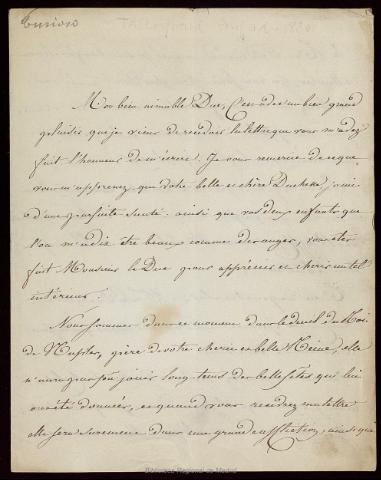 Curioso
Mon bien aimable Duc, C'est avec un bien grand
plaisir que je viens de recevoir la lettre que vous m'avez
fait l'honneur de m'écrire. Je vous remercie de ce que
vous m'apprenez que votre belle et chère Duchesse jouit
d'une parfaite santé ainsi que vos deux enfants que
l'on m'a dit être beaux comme des anges, vous êtes
fait Monsieur le Duc pour apprécier et cherir un tel
intérieur.
Nous sommes dans ce moment dans le deuil du Roi
de Naples, père de votre cherie et belle Reine, elle
n'aura pas joui long-tems des belles fêtes qui lui
ont été données, et quand vous recevrez ma lettre
elle sera surement dans une grande affliction, ainsi que
Biblioteca Regional de Madrid